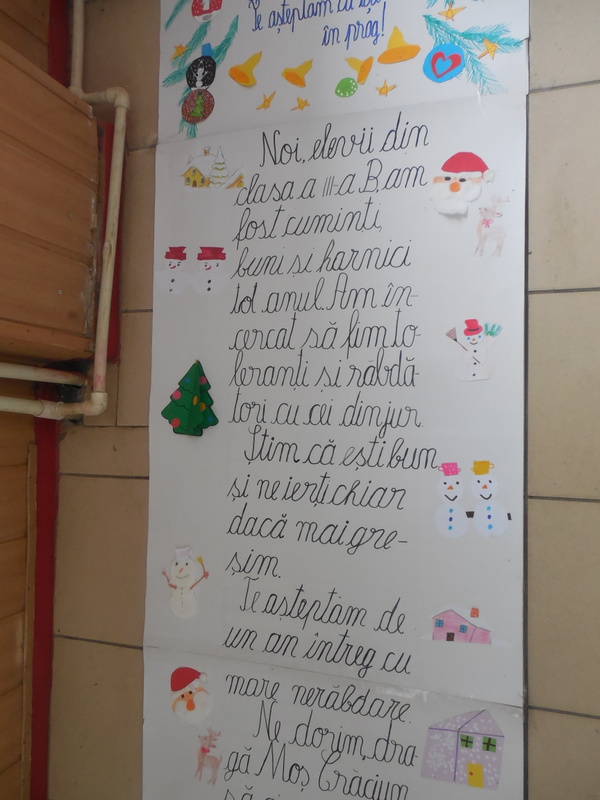 Te așteptăm cu
în prag!
Noi, elevii din
clasa a III-a B, am
fost cuminți,
buni si harnici
tot anul. Am în-
cercat să fim to-
leranți si răbdă-
tori cu cei din jur.
Știm că ești bun
și ne ierți chiar
dacă mai gre-
șim.
Te așteptăm de
un an întreg cu
mare nerăbdare.
Ne dorim, dra-
gă Moș Crăciun
să